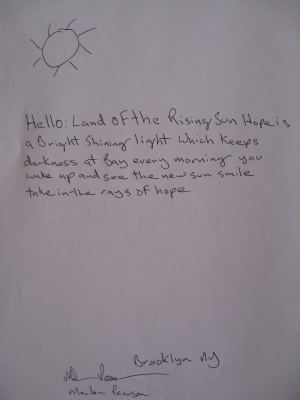 Hello: Land of the Rising Sun Hope is
a Bright Shining light which keeps
darkness at Bay every morning you
wake up and see the new sun smile
take in the rays of hope
Brooklyn NY